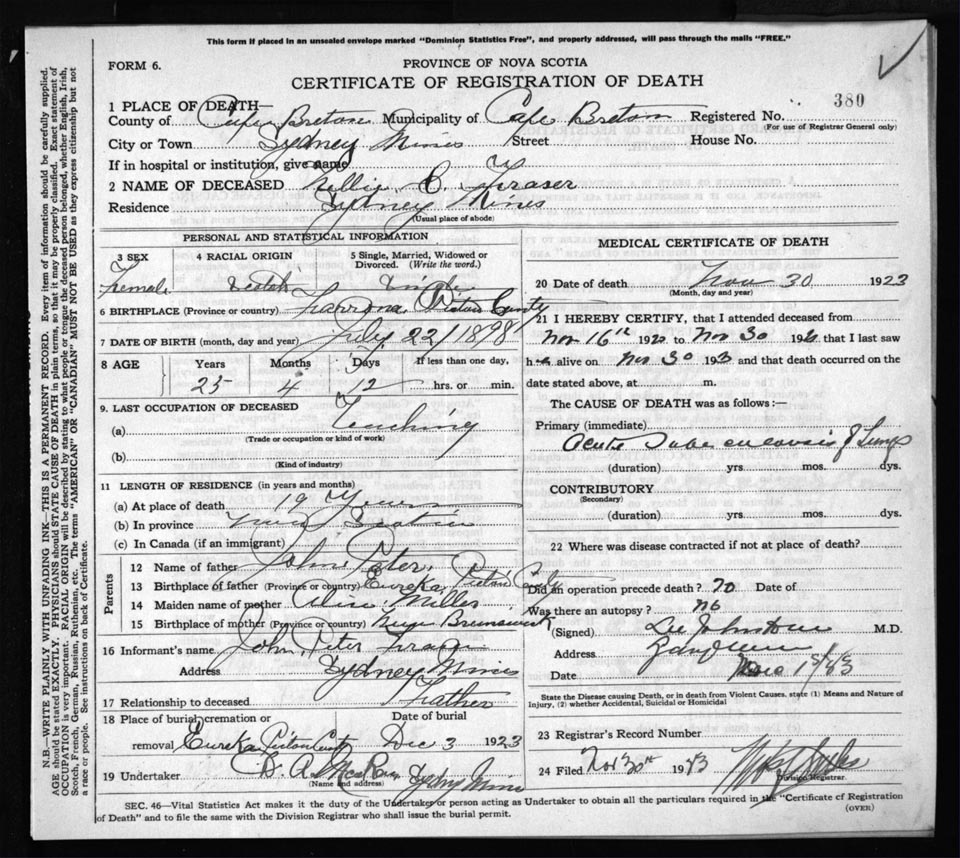 This form if placed in an unsealed envelope marked "Dominion Statistics Free", and properly addressed, will pass through the mails "FREE."
FORM 6.
PROVINCE OF NOVA SCOTIA
CERTIFICATE OF REGISTRATION OF DEATH
380
1 PLACE OF DEATH—
County of Cape Breton Municipality of Cape Breton Registered No.
(For use of Registrar General only)
City or Town Sydney Mines Street House No.
If in hospital or institution, give name
2 NAME OF DECEASED Nellie C. Fraser
Residence Sydney Mines
(Usual place of abode)
PERSONAL AND STATISTICAL INFORMATION
3 SEX 4 RACIAL ORIGIN 5 Single, Married, Widowed or Divorced. (Write the word.)
Female Scotch Single
6 BIRTHPLACE (Province or country) Pictou County
7 DATE OF BIRTH (month, day and year) July 22/1898
8 AGE Years Months Days If less than one day,
25 4 12 hrs. or min.
9. LAST OCCUPATION OF DECEASED
(a) Teaching
(Trade or occupation or kind of work)
(b)
(Kind of industry)
11 LENGTH OF RESIDENCE (in years and months)
(a) At place of death 19 Years
(b) In province Nova Scotia
(c) In Canada (if an immigrant)
Parents
12 Name of father John Peter
13 Birthplace of father (Province or country) Eureka Pictou County
14 Maiden name of mother Miller
15 Birthplace of mother (Province or country) New Brunswick
16 Informant's name John Peter Fraser
Address Sydney Mines
17 Relationship to deceased Father
18 Place of burial, cremation or removal Eureka Pictou County
Date of burial Dec 3 1923
19 Undertaker Sydney Mines
(Name and address)
MEDICAL CERTIFICATE OF DEATH
20 Date of death Nov 30 1923
(Month, day and year)
21 I HEREBY CERTIFY, that I attended deceased from
Nov 16th 192 to Nov 30 192 that I last saw
h alive on Nov 30 19 and that death occurred on the
date stated above, at m.
The CAUSE OF DEATH was as follows:—
Primary (immediate)
Acute Tuberculosis of Lungs
(duration) yrs. mos. dys.
CONTRIBUTORY
(Secondary)
(duration) yrs. mos. dys.
22 Where was disease contracted if not at place of death?
Did an operation precede death? no Date of
Was there an autopsy? no
(Signed) Johnstone M.D.
Address
Date Dec 1st/23
State the Disease causing Death, or in death from Violent Causes, state (1) Means and Nature of Injury, (2) whether Accidental, Suicidal or Homicidal
23 Registrar's Record Number
24 Filed Nov 30th 1923
Division Registrar.
SEC. 46—Vital Statistics Act makes it the duty of the Undertaker or person acting as Undertaker to obtain all the particulars required in the "Certificate of Registration
of Death" and to file the same with the Division Registrar who shall issue the burial permit.
(OVER)
N.B.—WRITE PLAINLY WITH UNFADING INK—THIS IS A PERMANENT RECORD. Every item of information should be carefully supplied.
AGE should be stated EXACTLY. PHYSICIANS should STATE CAUSE OF DEATH in plain terms, so that it may be properly classified. Exact statement of
OCCUPATION is very important. RACIAL ORIGIN will be described by stating to what people or tongue the deceased person belonged, whether English, Irish,
Scotch, French, German, Russian, Ruthenian, etc. The terms "AMERICAN" OR "CANADIAN" MUST NOT BE USED as they express citizenship but not
a race or people. See instructions on back of Certificate.